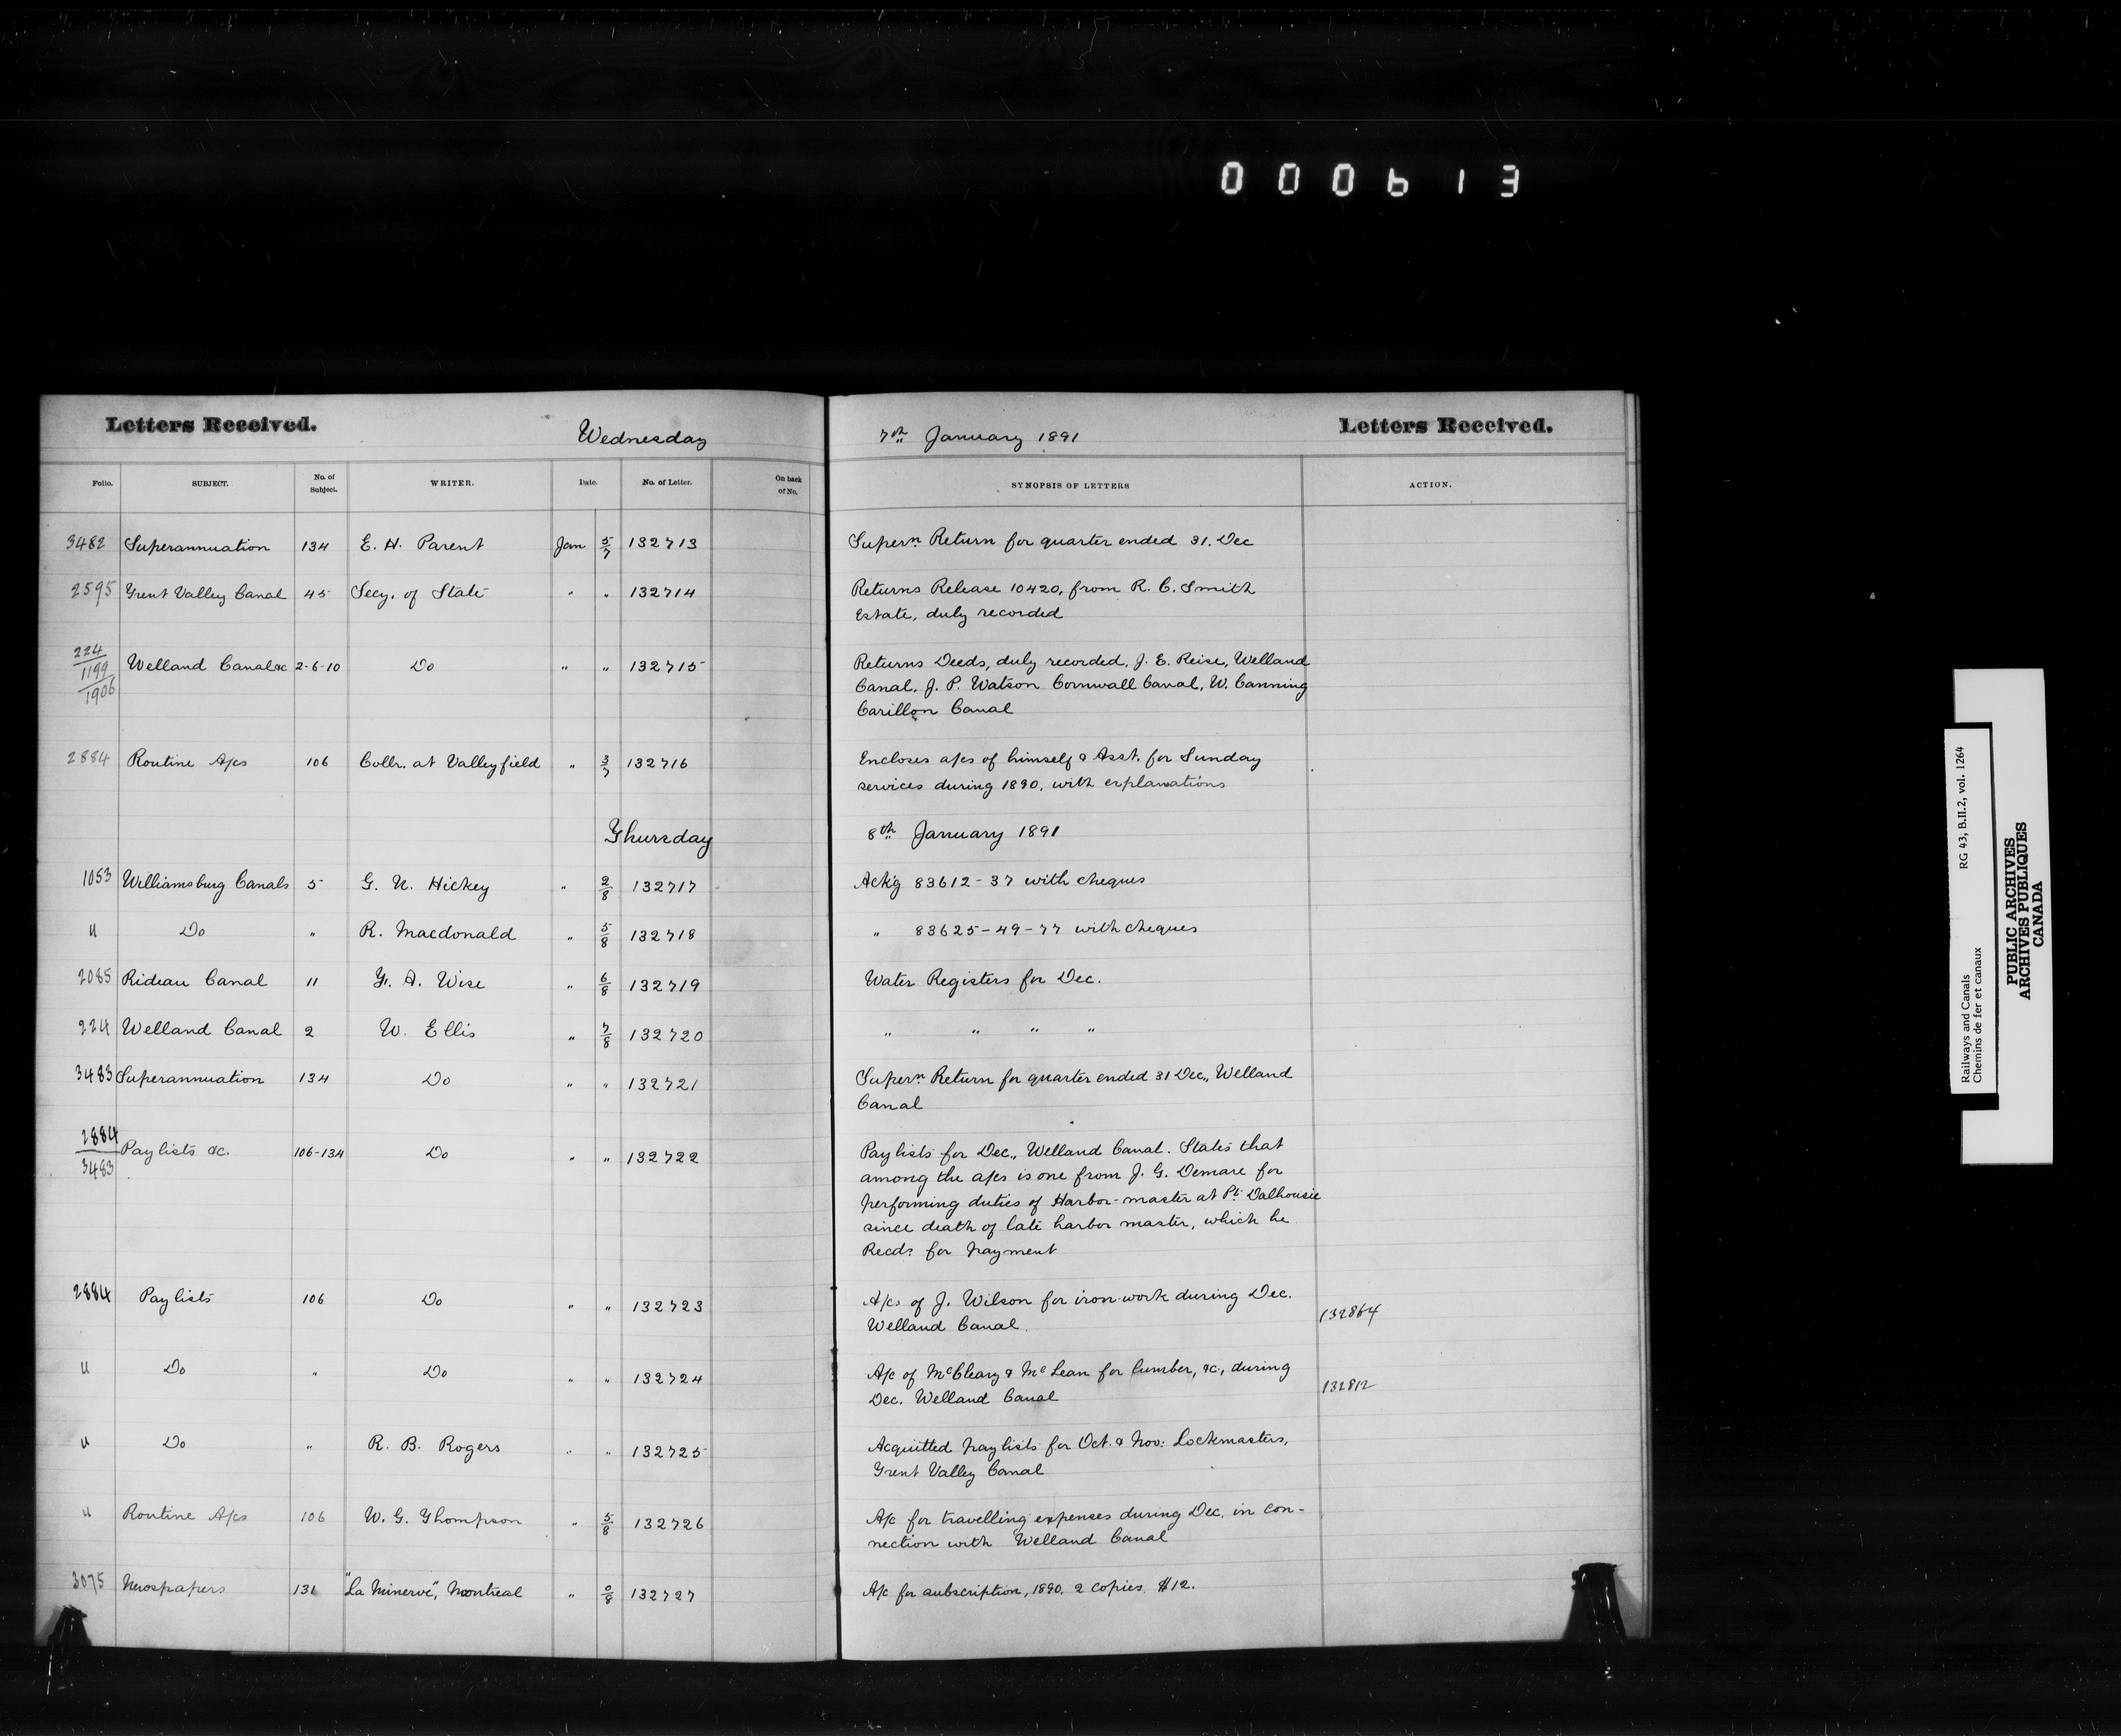 000613
Letters Received.
Wednesday
7th January 1891
Letters Received.
Folio. SUBJECT. No. of Subject. WRITER. Date. No. of Letter. On back of No. SYNOPSIS OF LETTERS ACTION.
3482 Superannuation 134 E. H. Parent Jan 5/7 132713 Supern. Return for quarter ended 31. Dec
2595 Trent Valley Canal 45 Secy. of State " " 132714 Returns Release 10420, from R. C. Smith
Estate, duly recorded
224/1199/1906 Welland Canal &c 2-6-10 Do " " 132715 Returns Deeds, duly recorded, J. E. Reise, Welland
Canal. J. P. Watson Cornwall Canal, W. Canning
Carillon Canal
2884 Routine A/cs 106 Collr. at Valleyfield " 3/7 132716 Encloses a/cs of himself & Asst. for Sunday
services during 1890, with explanations
Thursday 8th January 1891
1053 Williamsburg Canals 5 G. N. Hickey " 2/8 132717 Ack'g 83612-37 with cheques
" Do " R. Macdonald " 5/8 132718 " 83625-49-77 with cheques
2085 Rideau Canal 11 F. A. Wise " 6/8 132719 Water Registers for Dec.
224 Welland Canal 2 W. Ellis " 7/8 132720 " " " "
3483 Superannuation 134 Do " " 132721 Supern. Return for quarter ended 31 Dec., Welland
Canal
2884/3483 Paylists &c. 106-134 Do " " 132722 Paylists for Dec., Welland Canal. States that
among the a/cs is one from J. G. Demare for
performing duties of Harbor-master at Pt. Dalhousie
since death of late harbor master, which he
Recds. for payment
2884 Paylists 106 Do " " 132723 A/cs of J. Wilson for iron-work during Dec.
Welland Canal. 132864
" Do " Do " " 132724 A/c of McCleary & McLean for lumber, &c., during
Dec. Welland Canal 132812
" Do " R. B. Rogers " " 132725 Acquitted paylists for Oct. & Nov: Lockmasters,
Trent Valley Canal
" Routine A/cs 106 W. G. Thompson " 5/8 132726 A/c for travelling expenses during Dec. in con-
nection with Welland Canal
3075 Newspapers 131 "La Minerve", Montreal " 0/8 132727 A/c for subscription, 1890. 2 copies. $12.
Railways and Canals RG 43, B.II.2, vol. 1264
Chemins de fer et canaux
PUBLIC ARCHIVES
ARCHIVES PUBLIQUES
CANADA